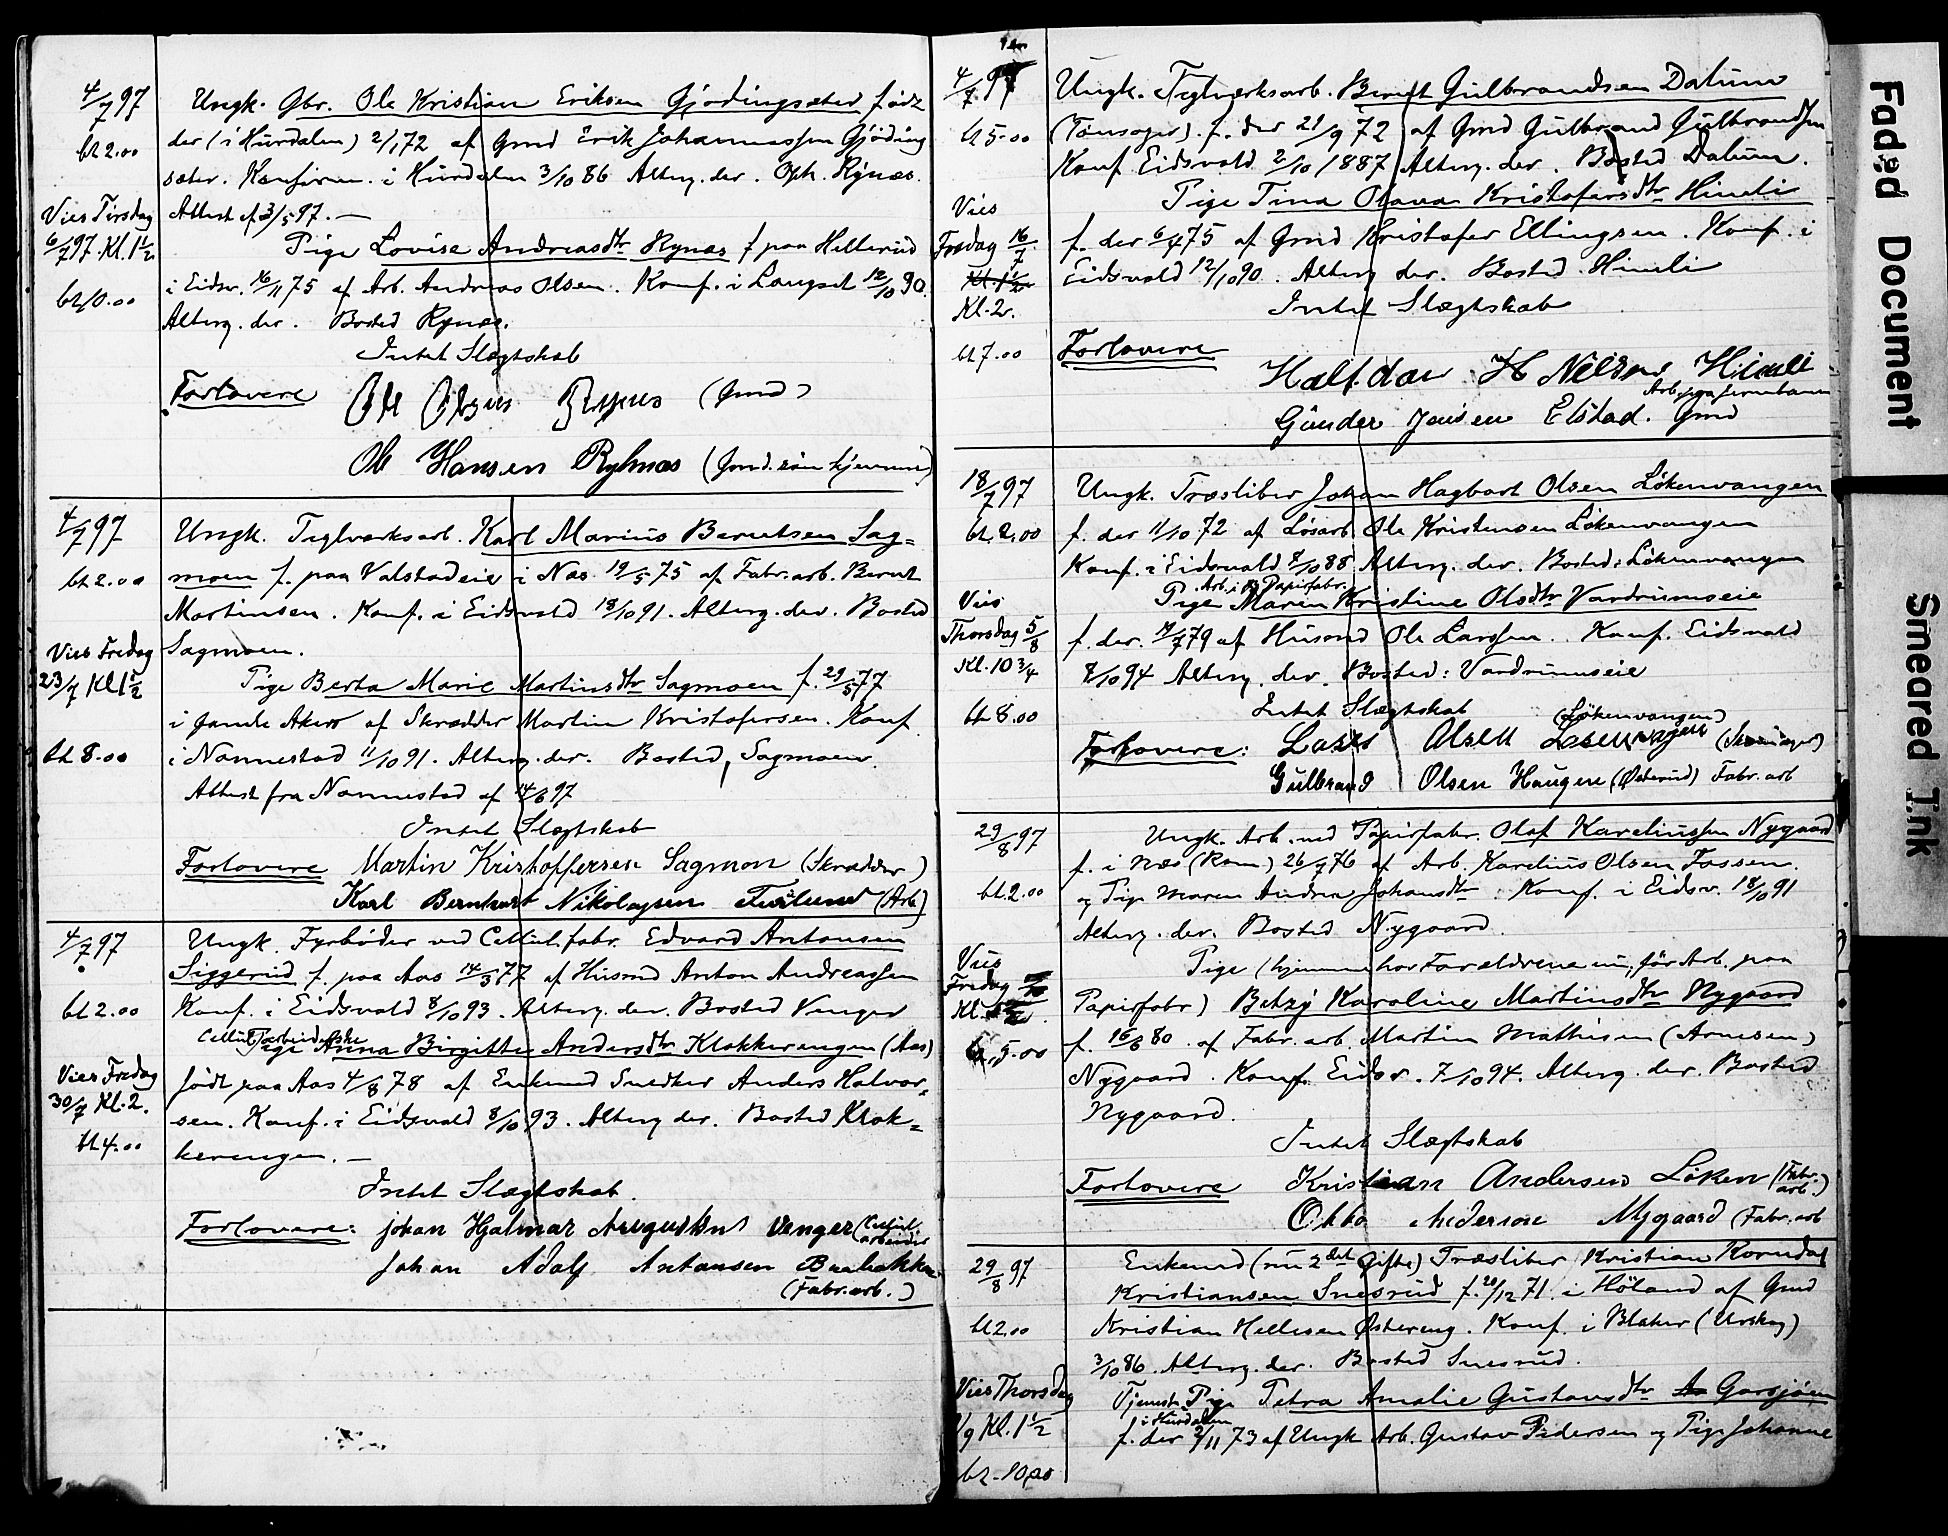 4/7 97
Ungk. Gbr. Ole Kristian Eriksen Gjødingsæter født
der (i Hurdalen) 2/1 72 af Gmd Erik Johannessen Gjøding
bt 2.00
sæter. Konfirm. i Hurdalen 3/10 86 Alterg. der. Oph. Rynæs.
Vies Tirsdag
Attest af 3/5 97. —
6/7 97. Kl. 1 1/2
Pige Lovise Andreasdtr Rynæs f paa Helterud
i Eidsv. 16/11 75 af Arb. Andreas Olsen. Konf. i Langset 12/10 90.
bt 10.00
Alterg. der. Bosted Rynæs.
Intet Slægtskab
Forlovere Ole Olsen Rynæs (Gmd)
Ole Hansen Rylnæs (Gmd. søn hjemme)
4/7 97
Ungk. Teglværksarb. Karl Marius Berntsen Sag=
bt 2.00
moen f. paa Valstadeie i Næs 19/5 75 af Fabr. arb. Bernt
Martinsen. Konf. i Eidsvold 18/10 91. Alterg. der. Bosted
Vies Fredag
Sagmoen.
23/7 Kl 1 1/2
Pige Berta Marie Martinsdtr Sagmoen f. 29/5 77
i Gamle Aker af Skrædder Martin Kristofersen. Konf.
bt 8.00
i Nannestad 11/10 91. Alterg. der. Bosted, Sagmoen.
Attest fra Nannestad af 14/6 97
Intet Slægtskab
Forlovere Martin Kristoffersen Sagmon (Skrædder)
Karl Bernhart Nikolaysen (Arb)
4/7 97
Ungk. Fyrbøder ved Cellul. fabr. Edvard Antonsen
Siggerud f. paa Aas 14/3 77 af Husmd Anton Andreassen
bt 2.00
Konf. i Eidsvold 8/10 93. Alterg. der. Bosted Venger
Cellul. arbeiderske
Pige Anna Birgitte Andersdtr Klokkerengen (Aas)
Vies Fredag
født paa Aas 4/8 78 af Enkemd Snedker Anders Halvor=
30/7 Kl. 2.
sen. Konf. i Eidsvold 8/10 93. Alterg der. Bosted Klok=
bt 4.00
kerengen. —
Intet Slægtskab.
Forlovere: Johan Hjalmar Augustinus Venger (Cellul. arbeider
Johan Adolf Antonsen Bræbakken
(Fabr. arb.)
4/7 97
Ungk. Teglværksarb. Bernt Gulbrandsen Dalum
bt 5.00
f. der 21/9 72 af Gmd Gulbrand Gulbrandsen
Konf. Eidsvold 2/10 1887 Alterg. der. Bosted Dalum.
Vies
Pige Tina Olava Kristofersdtr Himli
Fredag 16/7
f. der 6/4 75 af Gmd Kristofer Ellingsen. Konf. i
Kl 1 1/2
Eidsvold 12/10 90. Alterg. der. Bosted Himli
Kl. 2.
Intet Slægtskab
bt 7.00
Forlovere
Halfdan H Nilsen Himli
Arb. paa Jernbanen
Gunder Jensen Elstad. Gmd
18/7 97
Ungk. Træsliber Johan Hagbart Olsen Løkenvangen
bt. 2.00
f. der 11/10 72 af Løsarb. Ole Kristensen Løkenvangen
Konf. i Eidsvold 7/10 88 Alterg. der. Bosted: Løkenvangen
Vies
Arb. i Papirfabr.
Pige Maren Kristine Olsdtr Vardrumseie
Thorsdag 5/8
f. der. 19/4 79 af Husmd Ole Larssen. Konf. Eidsvold
Kl. 10 3/4
7/10 94 Alterg. der. Bosted: Vardrumseie
bt 8.00
Intet Slægtskab
(Løkenvangen)
Forlovere: Lars Olsen
Gulbrand Olsen Haugen (Østerud) Fabr. arb
29/8 97
Ungk. Arb. ved Papirfabr. Olaf Kareliussen Nygaard
f. i Næs (Rom.) 26/7 76 af Arb. Karelius Olsen Fossen
bt. 2.00
og Pige Maren Andrea Johansdtr. Konf. i Eidsv. 18/10 91
Alterg. der. Bosted Nygaard.
Vies
Pige (hjemme hos Forældrene nu, før Arb. paa
Fredag
Papirfabr) Betzy Karoline Martinsdtr Nygaard
Kl.
bt. 5.00
f. 16/6 80 af Fabr. arb. Martin Mathisen (Arnesen)
Nygaard. Konf. Eidsv. 7/10 94. Alterg. der. Bosted
Nygaard.
Intet Slægtskab
Forlovere Kristian Andersen Løken (Fabr. arb.)
Otto Andersen Nygaard (Fabr. arb
29/8 97
Enkemd (nu 2det Gifte) Træsliber Kristian Korndal
Kristiansen Snesrud f. 20/12 71 i Høland af Gmd
bt 2.00
Kristian Hellesen Østereng. Konf. i Blaker (Urskog)
3/10 86. Alterg. der. Bosted Snesrud.
Vies Thorsdag
Tjenest. Pige Petra Amalie Gustavsdtr Garsjøen
1/9 Kl. 1 1/2
i Hurdalen
f. der 2/11 73 af Ungk. Arb. Gustav Pedersen og Pige Johanne
bt. 10.00
Faded Document
Smeared Ink